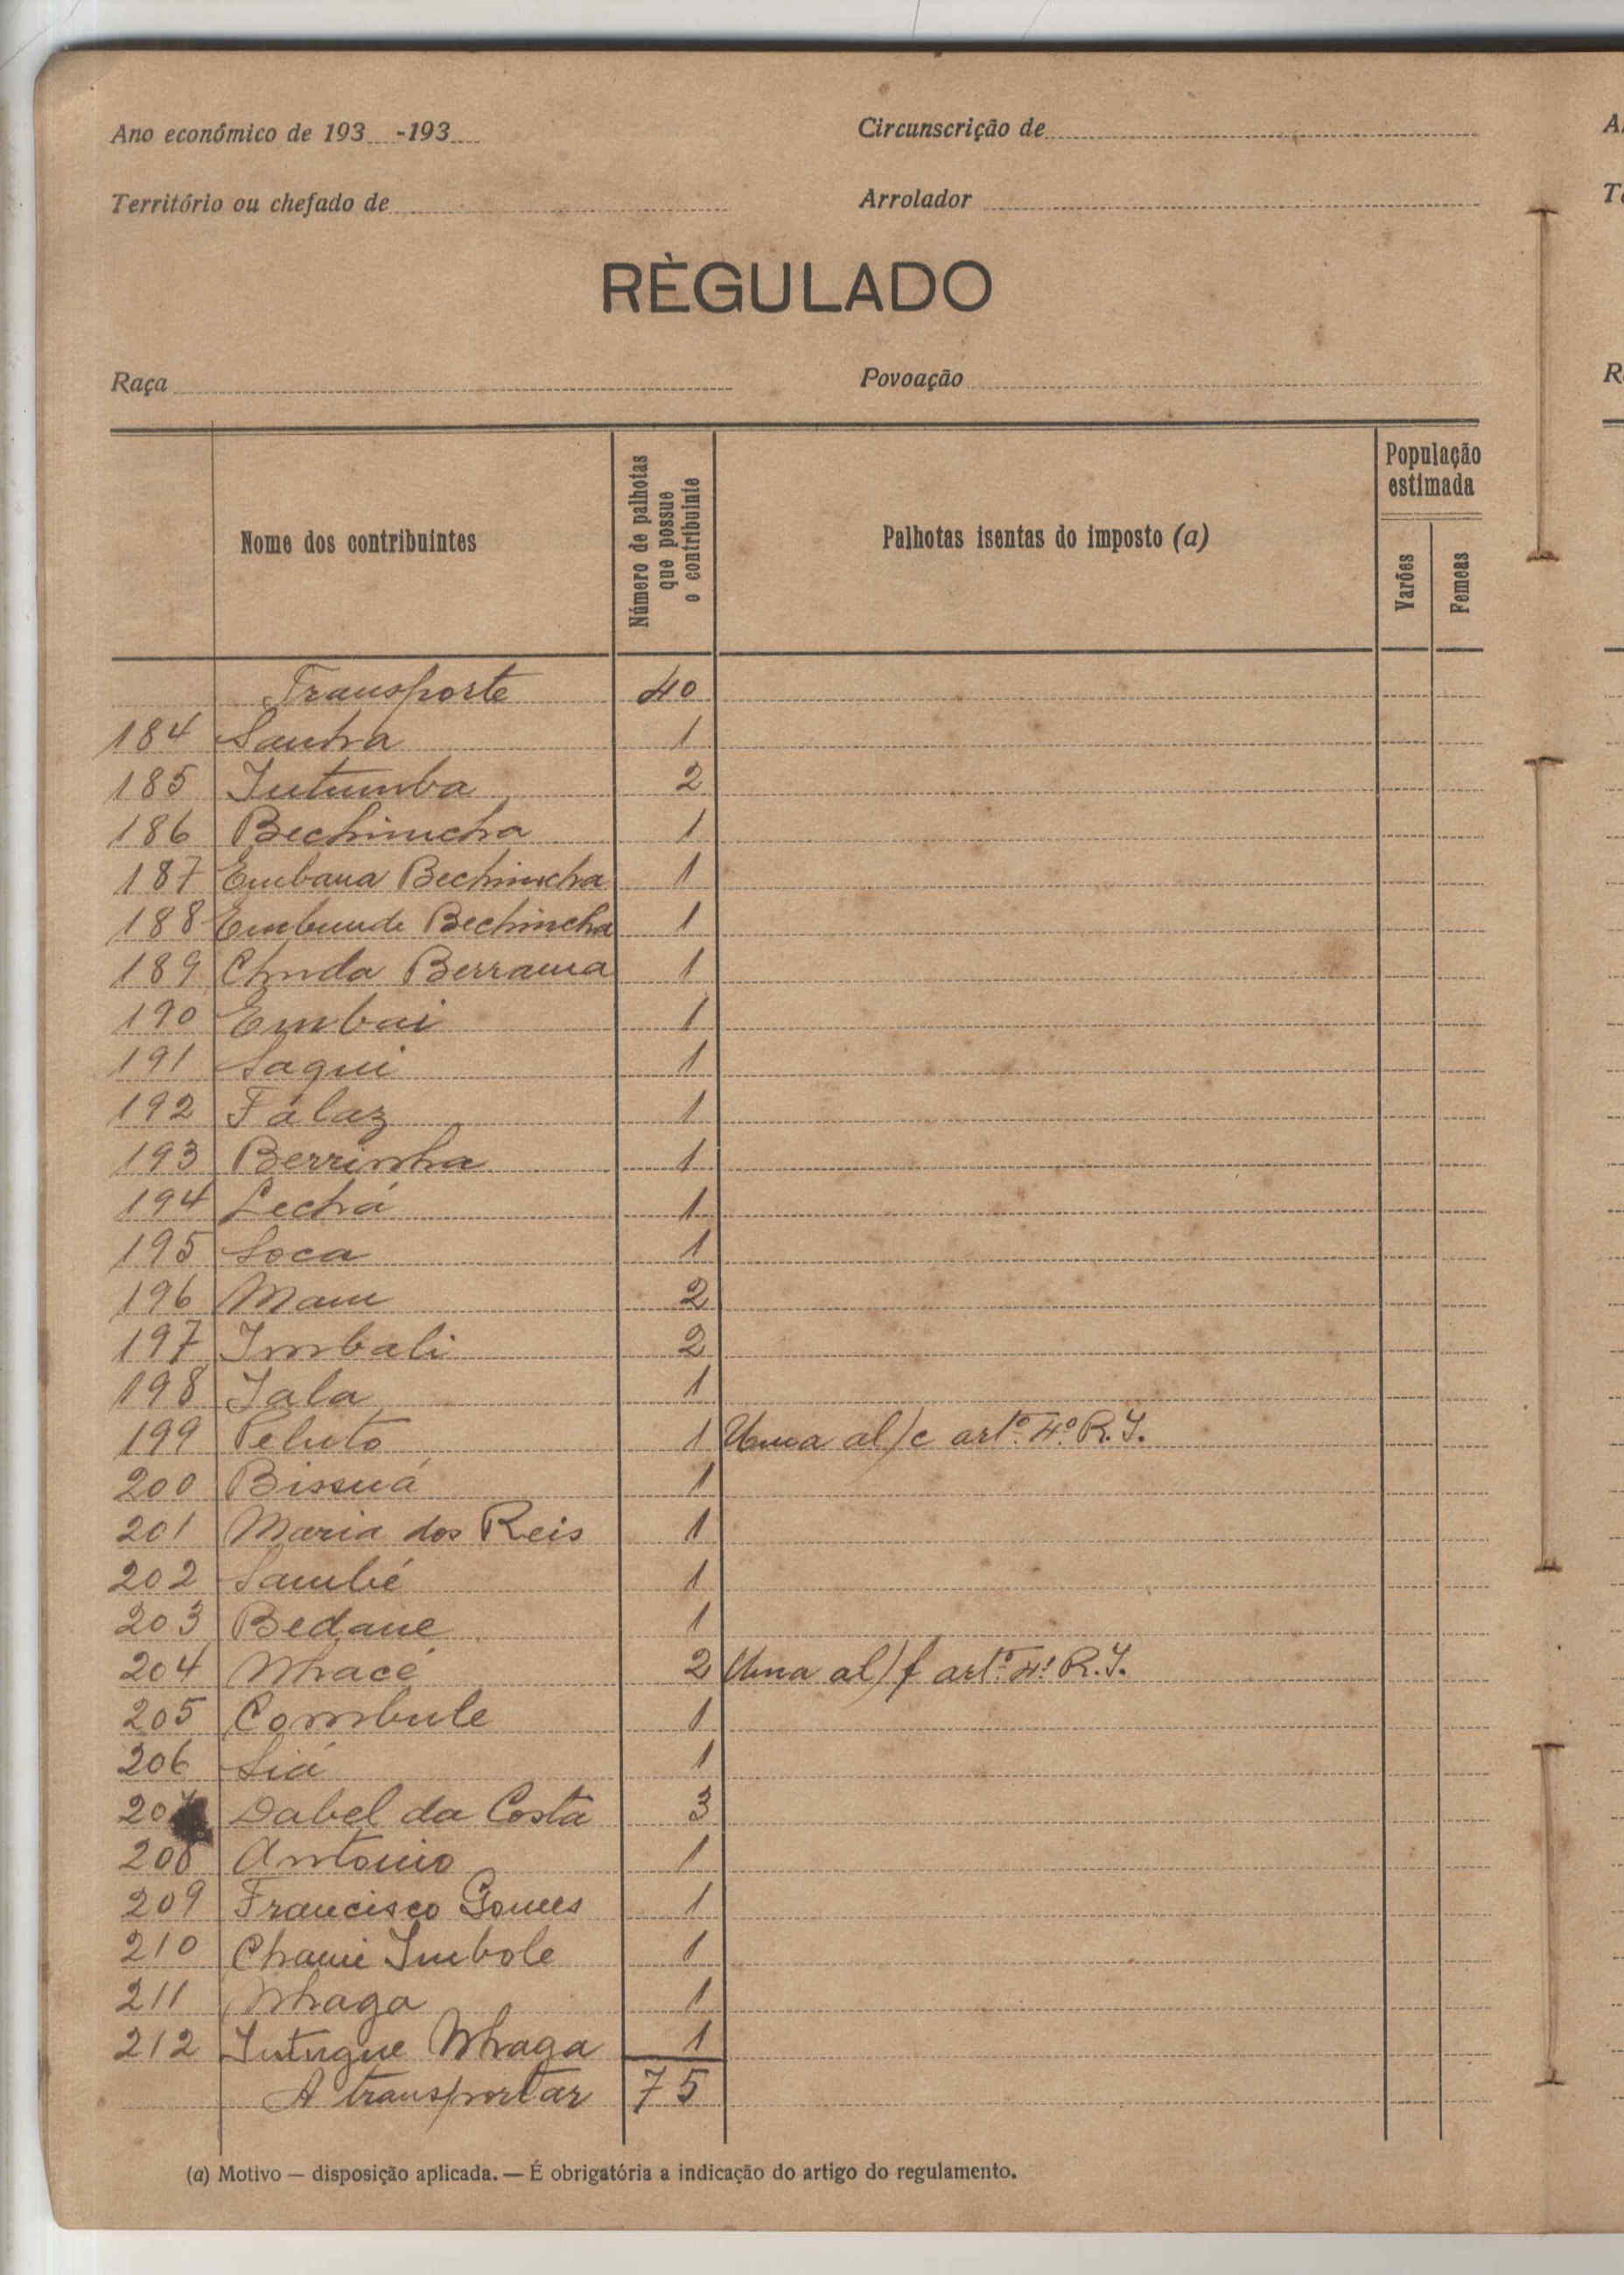 Ano económico de 193 -193
Circunscrição de
Território ou chefado de
Arrolador
RÈGULADO
Raça
Povoação
Nome dos contribuintes
Número de palhotas que possue o contribuinte
Palhotas isentas do imposto (a)
População estimada
Varões
Femeas
Transporte 40
184 Sanhá 1
185 Intumba 2
186 Bechincha 1
187 Embana Bechincha 1
188 Embunde Bechincha 1
189 Chuda Berrama 1
190 Embai 1
191 Saqui 1
192 Falaz 1
193 Berrinha 1
194 Lechá 1
195 Soca 1
196 Mam 2
197 Imbali 2
198 Iala 1
199 Peluto 1 Uma al/c artº 4º R.I.
200 Bissuá 1
201 Maria dos Reis 1
202 Sambé 1
203 Bedane 1
204 Nhacé 2 Uma al/f artº 4º R.I.
205 Combule 1
206 Siá 1
20 Dabel da Costa 3
208 Antonio 1
209 Francisco Gomes 1
210 Chami Imbole 1
211 Nhaga 1
212 Intugue Nhaga 1
A transportar 75
(a) Motivo — disposição aplicada. — É obrigatória a indicação do artigo do regulamento.